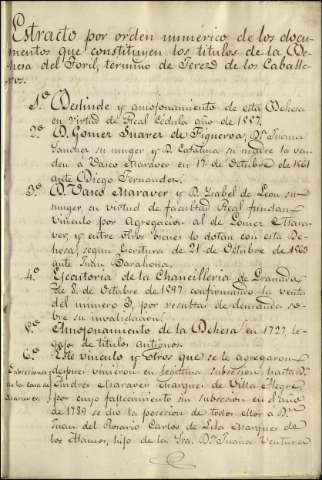 Extracto por orden numérico de los docu-
mentos que constituyen los títulos de la De-
hesa del Toril, término de Jerez de los Caballe-
ros.
1º Deslinde y amojonamiento de esta Dehesa
en virtud de Real Cédula año de
2º D. Gomez Suarez de Figueroa, Dª Juana
Sanchez su muger y Dª Catalina su madre la ven-
den á Vasco Maraver en 17 de Octubre de 1561
ante Diego Fernandez.
3º D. Vasco Maraver y Dª Isabel de Leon su
muger, en virtud de facultad Real fundan
Vínculo por Agregacion al de Gomez Mara-
ver, y entre otros bienes lo dotan con esta De-
hesa, segun Escritura de 21 de Octubre de
ante Juan Barahona.
4º Ejecutoria de la Chancilleria de Granada
de 8 de Octubre de confirmando la venta
del número 2, por resultar de demanda so-
bre su invalidacion.
5º Amojonamiento de la Dehesa en 1727, le-
gajo de títulos antiguos.
6º Este vínculo y otros que se le agregaron
Subcesiones de la casa de Maraver
y despues vinieron en legítima subcesion hasta Dª
Maraver Marques de Villa Alegre
por cuyo fallecimiento sin subcesion en el año
de 1789 se dio la posesion de todos ellos á Dn
Juan del Rosario Carlos de Lila Marques de
los Alamos, hijo de la Sra. Dª Juana Ventura